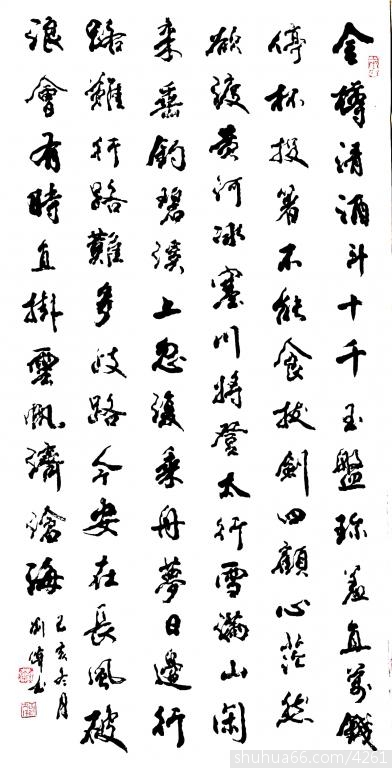 金樽清酒斗十千玉盤珍羞直萬錢
停杯投箸不能食拔劍四顧心茫然
欲渡黄河冰塞川將登太行雪滿山闲
来垂釣碧溪上忽復乘舟夢日邊行
路難行路難多歧路今安在長風破
浪會有時直掛雲帆濟滄海
己亥冬月
shuhua66.com/4261